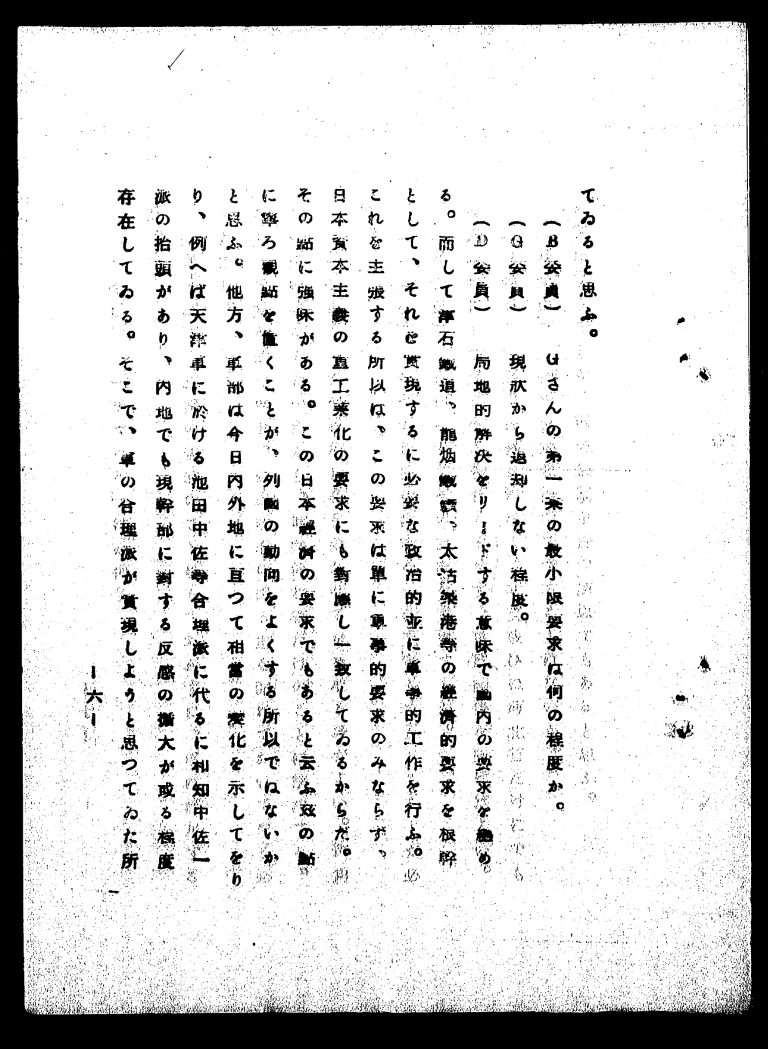 てゐると思ふ。
(B委員) Gさんの第一案の最小限要求は何の程度か。
(G委員) 現狀から退却しない程度。
(D委員) 局地的解決をリードする意味で國内の要求を纏め
る。而して津石鐵道、龍烟鐵鑛、太沽築港等の經濟的要求を根幹
として、それを實現するに必要な政治的並に軍事的工作を行ふ。
これを主張する所以は、この要求は單に軍事的要求のみならず、
日本資本主義の重工業化の要求にも對應し一致してゐるからだ。
その點に強味がある。この日本經濟の要求でもあると云ふ玆の點
に寧ろ觀點を置くことが、列國の動向をよくする所以でないか
と思ふ。他方、軍部は今日内外地に亘つて相當の變化を示してをり
り、例へば天津軍に於ける池田中佐等合理派に代るに和知中佐一
派の抬頭があり、内地でも現幹部に對する反感の擴大が或る程度
存在してゐる。そこで、軍の合理派が實現しようと思つてゐた所
ー六ー